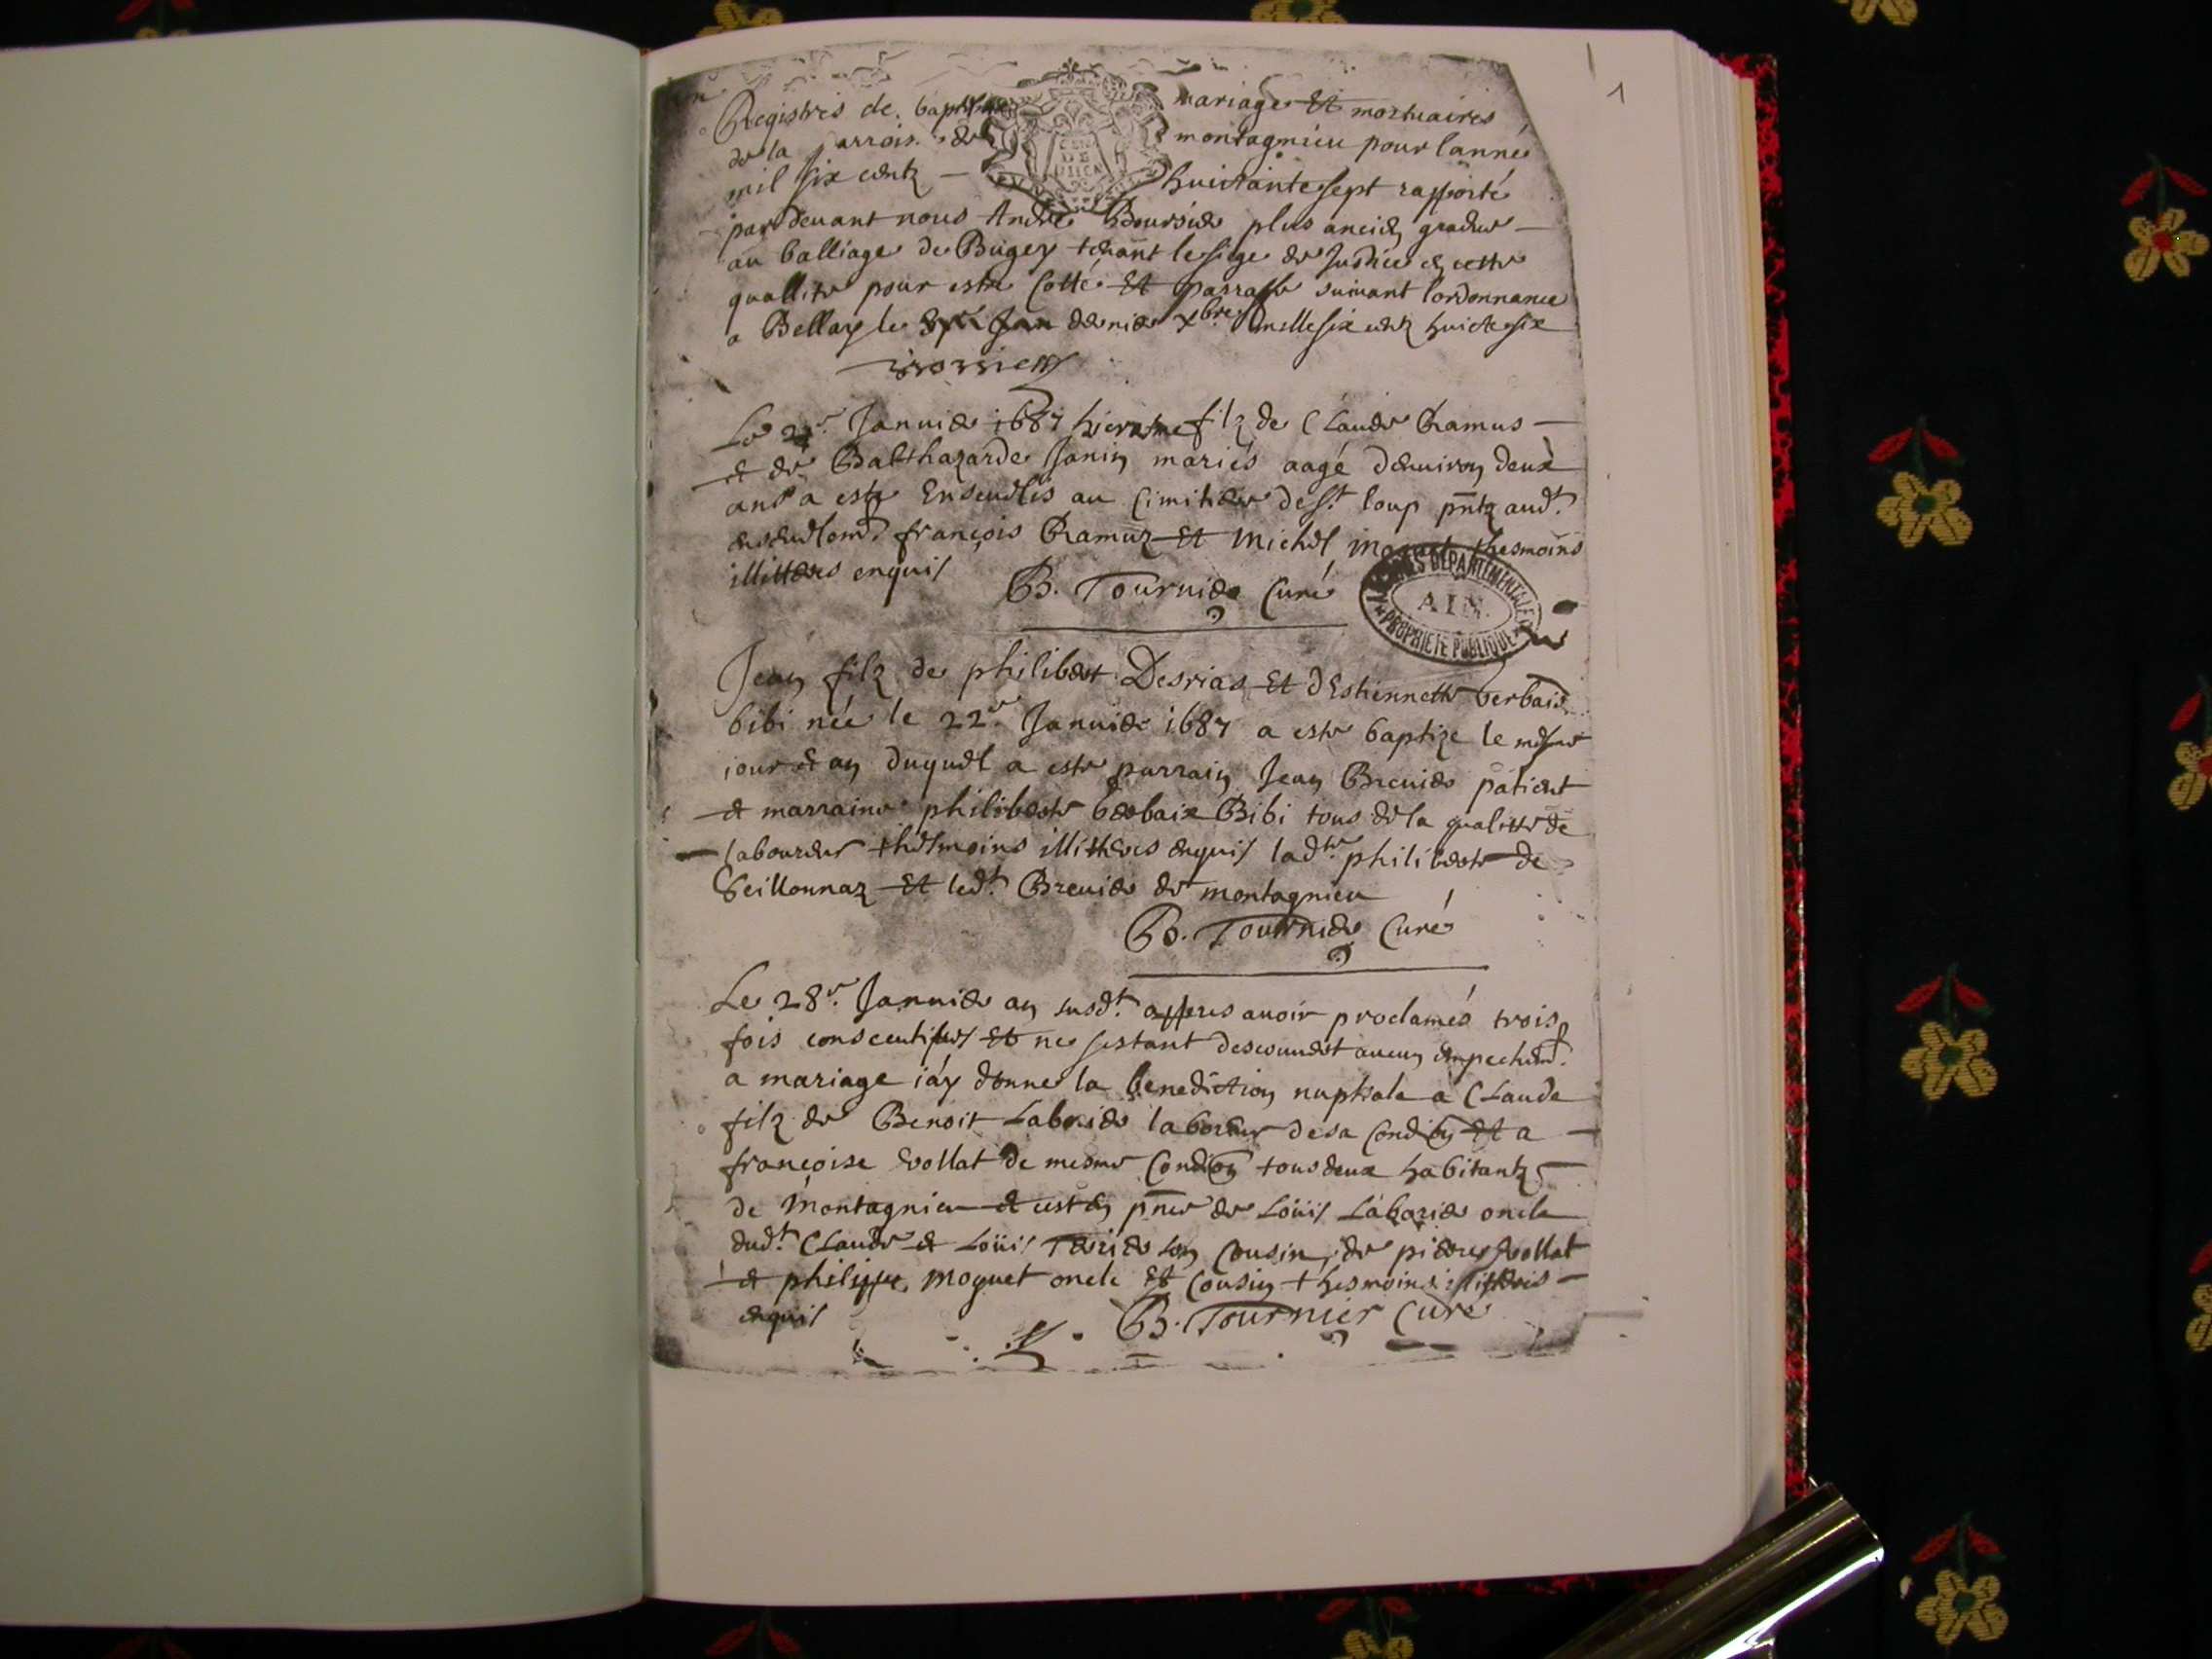 1
Registres de baptesme mariage Et mortuaires
de la parrois. de montagnieu pour lanné
mil six centz — huictante sept rapporté
pardevant nous André Boursier plus ancien gradue —
au balliage de Bugey tenant le siege de Justice en cette
quallite pour estre Cotté Et parraffe suivant l'ordonnance
a Belley le dernier xbre mille six centz huicte six
Le Januier 1687 hierosme filz de Claude Ramus —
et de Balthazarde Janin mariés aagé denuiron deux
ans a este Enseuelis au Cimitiere de st loup pntz audt.
enseuelemt. françois Ramuz Et Michel moguet thesmoins
illitteres enquis
B. Tournier Curé
ARCHIVES DEPARTEMENTALES
AIN
PROPRIETE PUBLIQUE
Jean filz de philibert Desrias Et dEstiennette berbaix
bibi née le 22e. Januier 1687 a este baptize le mesme
jour et an duquel a este parrain Jean Breuier patient
et marraine philiberte berbaix Bibi tous de la qualitte de
laboureur thesmoins illitteres enquis ladte. philiberte de
Seillonnaz Et ledt. Breuier de montagnieu
B. Tournier Curé
Le 28e. Januier an susdt. appres auoir proclamés trois
fois consecutifues Et ne sestant descouuert aucun empechemt.
a mariage iáy donne la benediction nuptiale a Claude
filz de Benoit Laborier laboreur de sa Condion Et a —
françoise Vollat de mesme Condion tous deux habitantz
de Montagnieu et cest en pnce de Loüis Laborier oncle
dudt. Claude et Loüis Terrier son Cousin, de pierre Vollat
et philippe moguet oncle Et Cousin thesmoins illitteres —
enquis
B. Tournier Curé